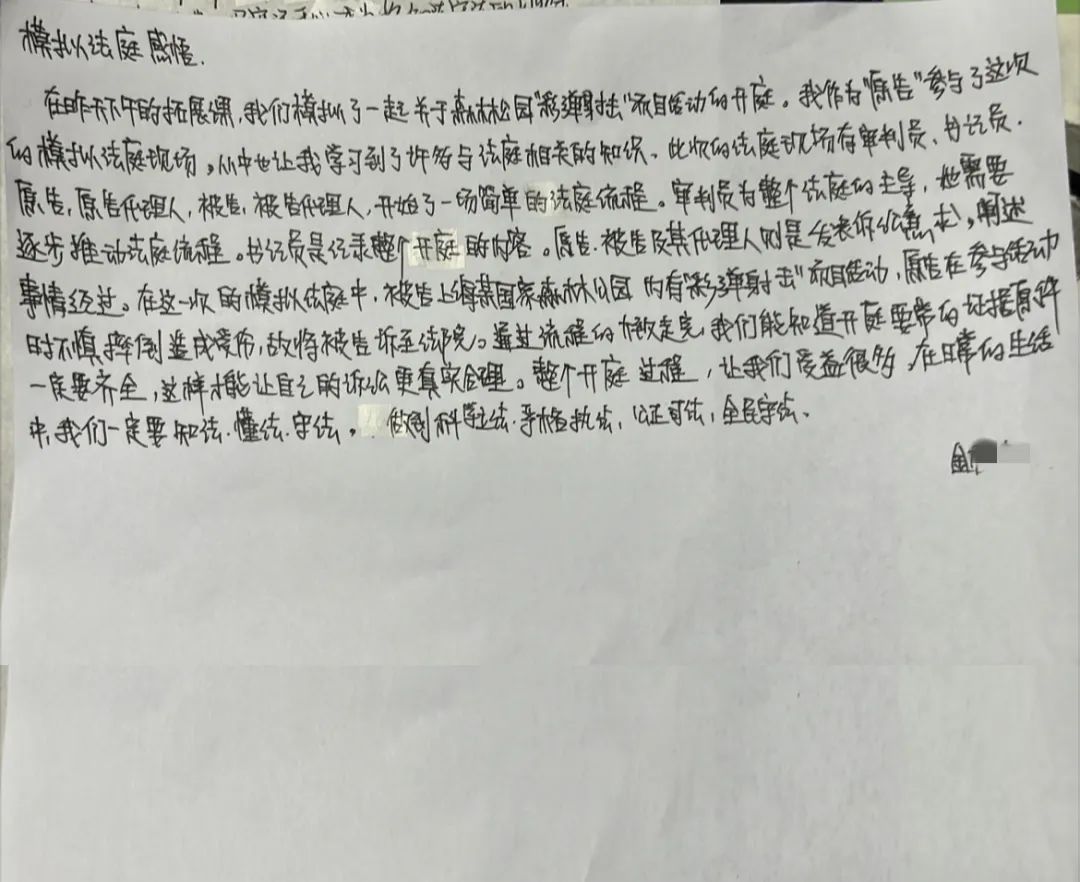 模拟法庭感悟.
在昨天下午的拓展课,我们模拟了一起关于森林公园"彩弹射击"项目活动的开庭。我作为"原告"参与了这次
的模拟法庭现场,从中也让我学习到了许多与法庭相关的知识、此次的法庭现场有审判员、书记员.
原告,原告代理人,被告,被告代理人,开始了一场简单的法庭流程。审判员为整个法庭的主导,他需要
逐步推动法庭流程。书记员是记录整个开庭的内容。原告.被告及其代理人则是发表诉讼请求,阐述
事情经过。在这一次的模拟法庭中,被告上海某国家森林公园内有"彩弹射击"项目活动,原告在参与活动
时不慎摔倒造成受伤,故将被告诉至法院。通过流程的大致走完,我们能知道开庭要带的证据原件
一定要齐全,这样才能让自己的诉讼更真实合理。整个开庭过程,让我们受益很多.在日常的生活
中,我们一定要知法.懂法.守法。做到科学立法.严格执法,公正司法,全民守法.